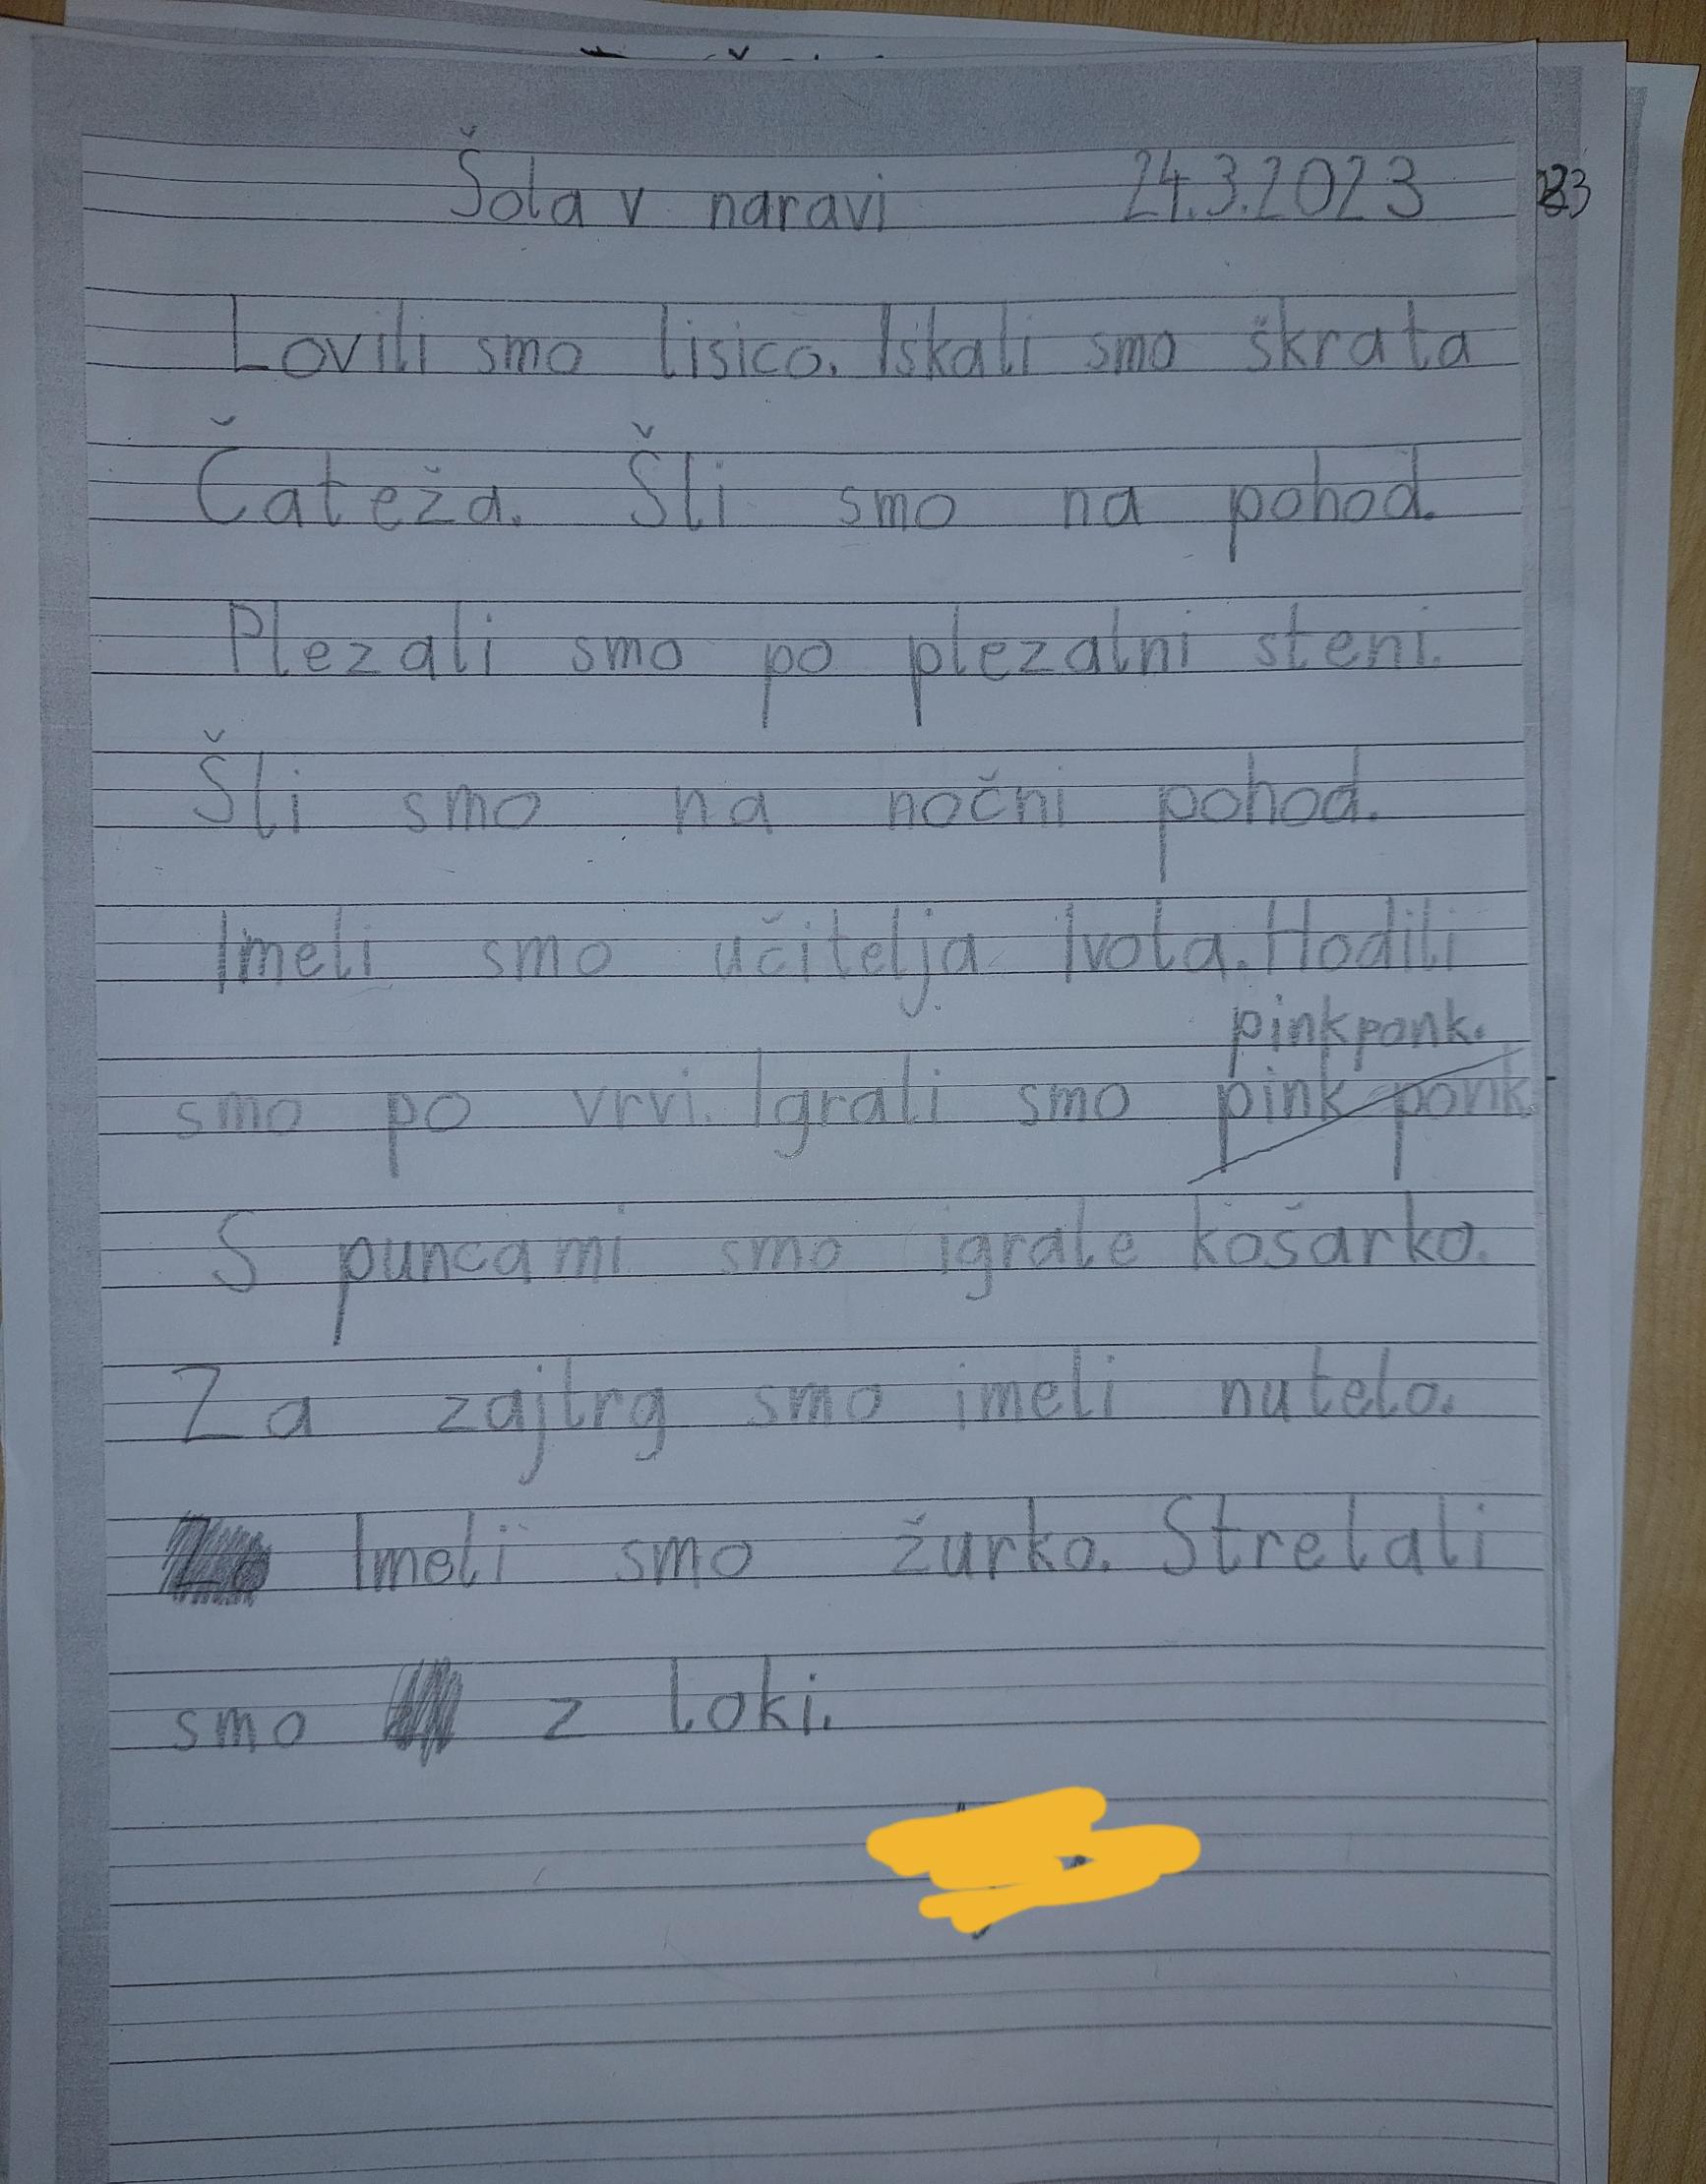 Šola v naravi 24.3.2023
23
Lovili smo lisico. Iskali smo škrata
Čateža. Šli smo na pohod.
Plezali smo po plezalni steni.
Šli smo na nočni pohod.
Imeli smo učitelja Ivota. Hodili
pinkponk.
smo po vrvi. Igrali smo pink ponk
S puncami smo igrale košarko.
Za zajtrg smo imeli nutelo.
Imeli smo žurko. Strelali
smo z loki.